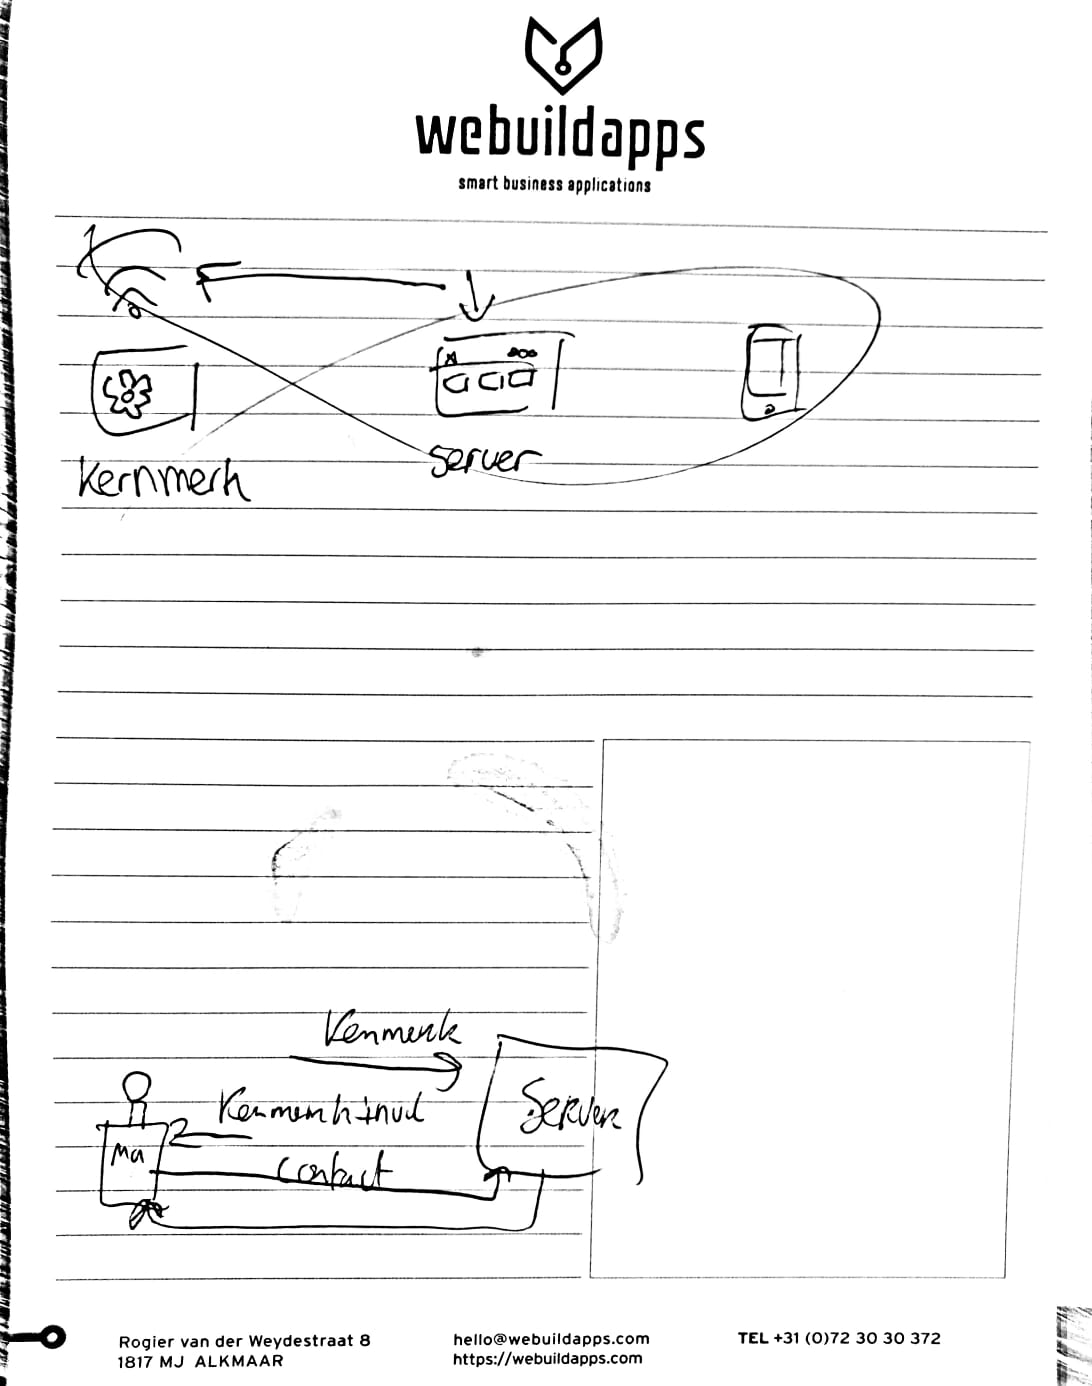 webuildapps
smart business applications
server
Kernmerk
Kenmerk
Server
Ma
Contact
Rogier van der Weydestraat 8
1817 MJ ALKMAAR
hello@webuildapps.com
https://webuildapps.com
TEL +31 (0)72 30 30 372